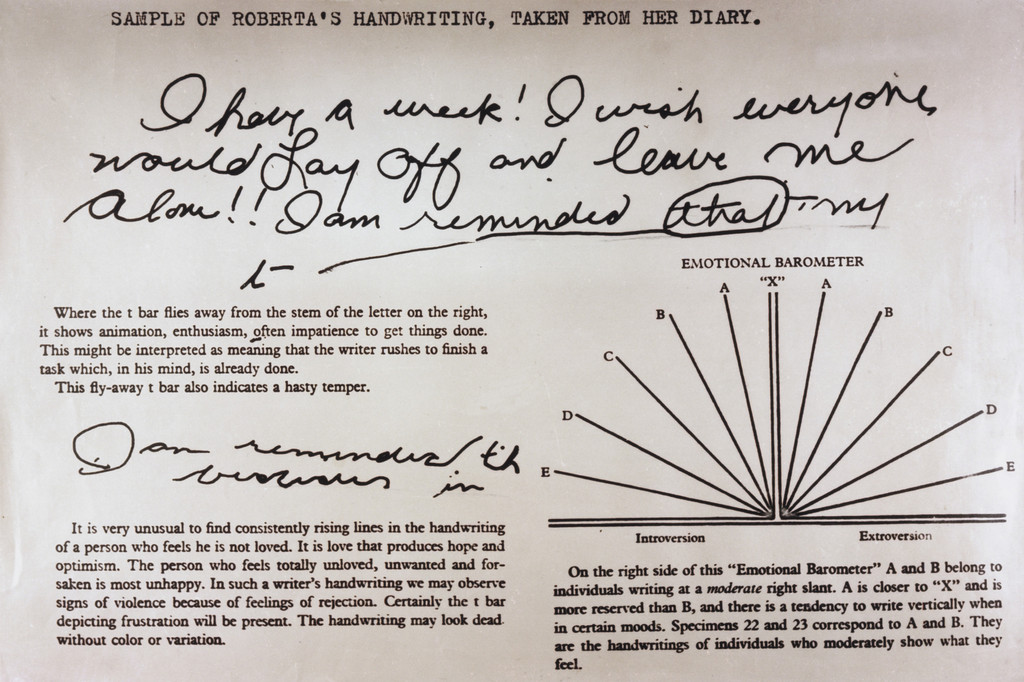 SAMPLE OF ROBERTA'S HANDWRITING, TAKEN FROM HER DIARY.
I have a week! I wish everyone
would Lay Off and leave me
Alone!! I am reminded that my
t
Where the t bar flies away from the stem of the letter on the right,
it shows animation, enthusiasm, often impatience to get things done.
This might be interpreted as meaning that the writer rushes to finish a
task which, in his mind, is already done.
This fly-away t bar also indicates a hasty temper.
I am reminded th
in
It is very unusual to find consistently rising lines in the handwriting
of a person who feels he is not loved. It is love that produces hope and
optimism. The person who feels totally unloved, unwanted and for-
saken is most unhappy. In such a writer's handwriting we may observe
signs of violence because of feelings of rejection. Certainly the t bar
depicting frustration will be present. The handwriting may look dead
without color or variation.
EMOTIONAL BAROMETER
"X"
A A
B B
C C
D D
E E
Introversion Extroversion
On the right side of this "Emotional Barometer" A and B belong to
individuals writing at a moderate right slant. A is closer to "X" and is
more reserved than B, and there is a tendency to write vertically when
in certain moods. Specimens 22 and 23 correspond to A and B. They
are the handwritings of individuals who moderately show what they
feel.